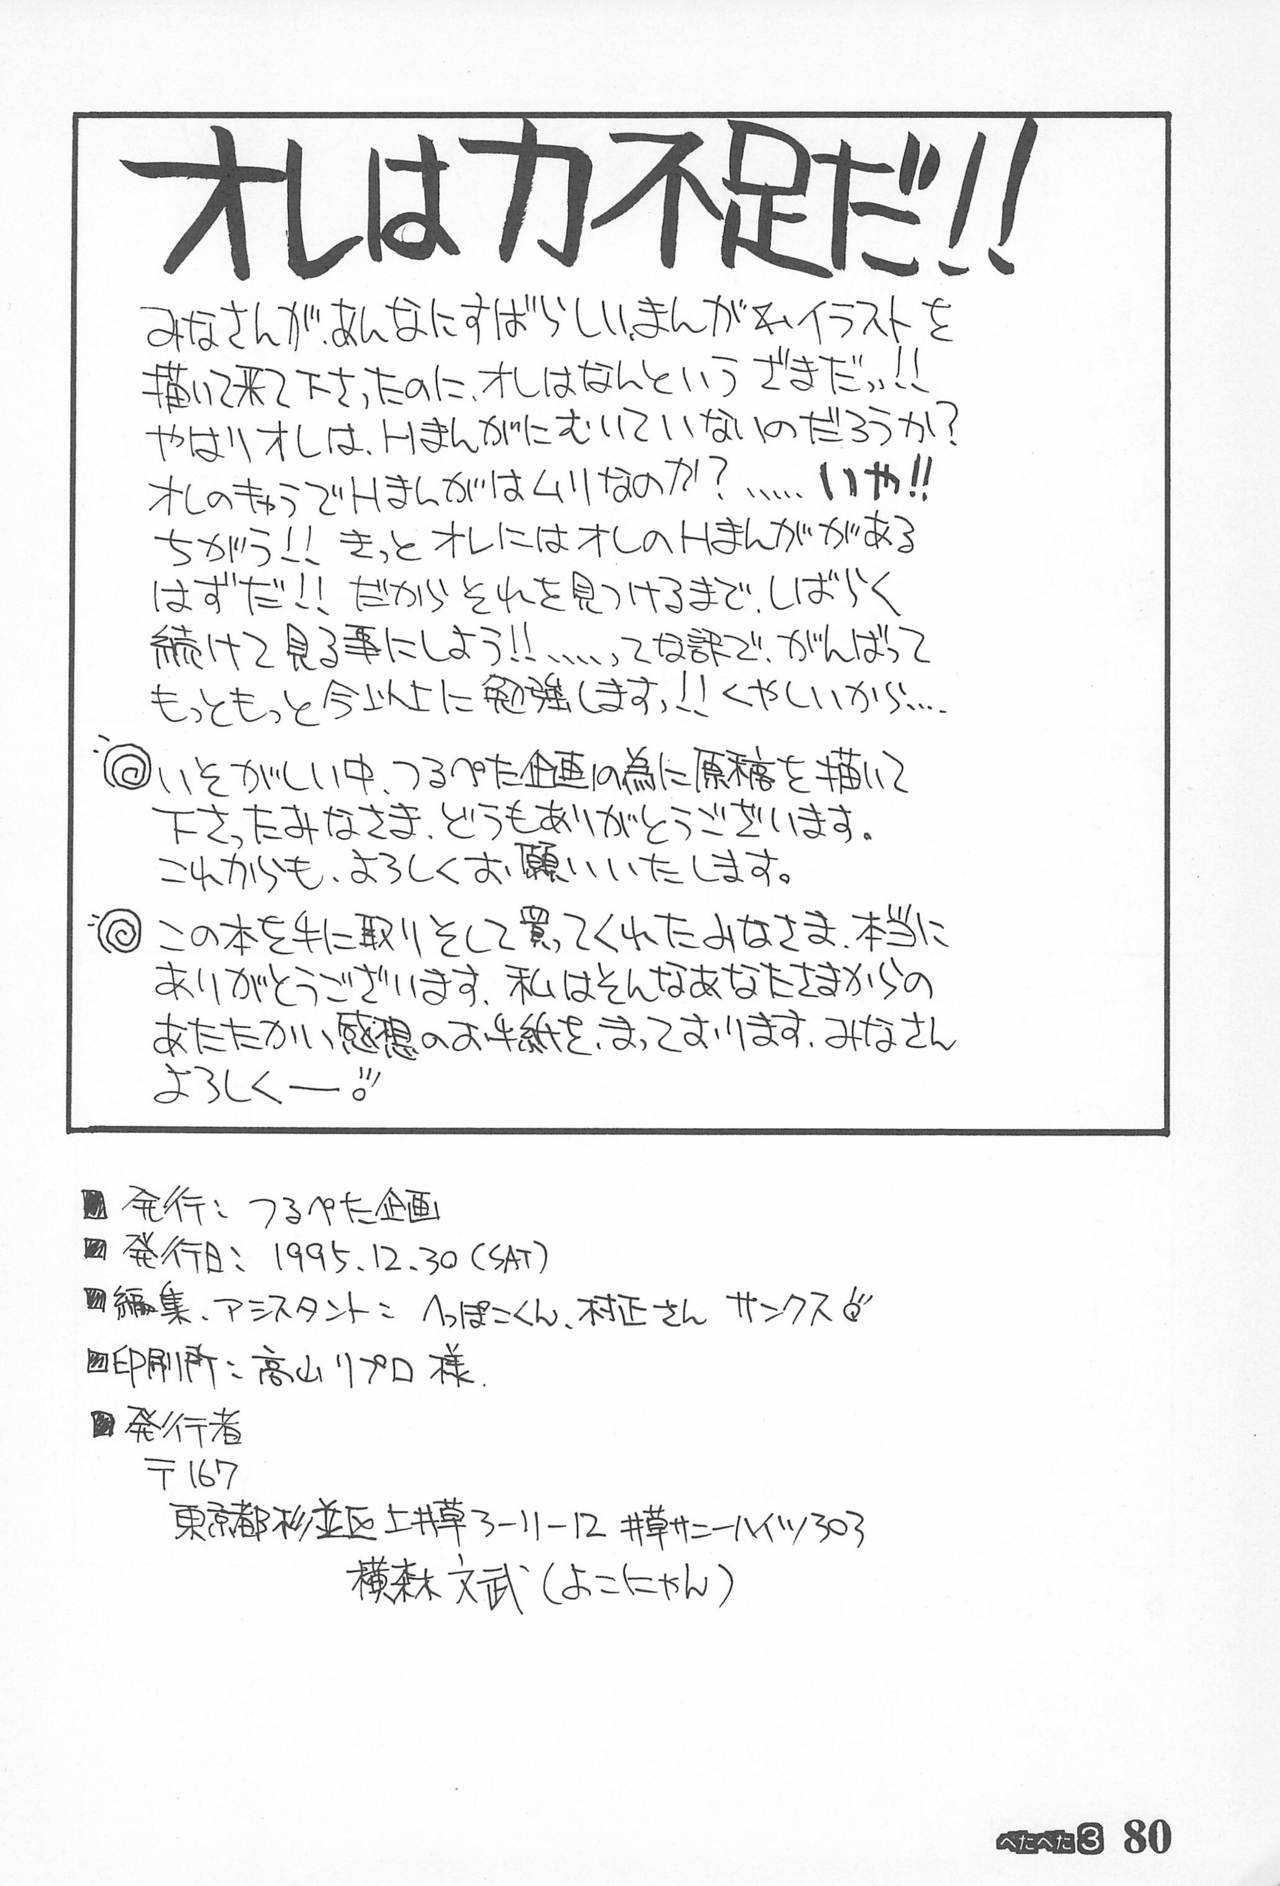 オレは力不足だ!!
みなさんが、あんなにすばらしいまんがやイラストを
描いて来て下さったのに、オレはなんというざまだッ!!
やはりオレは、Hまんがにむいていないのだろうか?
オレのきゅうでHまんがはムリなのか?……いや!!
ちがう!! きっとオレにはオレのHまんががある
はずだ!! だからそれを見つけるまで、しばらく
続けて見る事にしよう!!……ってな訳で、がんばって
もっともっと今以上に勉強しますッ!!くやしいから…
いそがしい中、つるぺた企画の為に原稿を描いて
下さったみなさま、どうもありがとうございます。
これからも、よろしくお願いいたします。
この本を手に取りそして買ってくれたみなさま、本当に
ありがとうございます、私はそんなあなたさまからの
あたたかい感想のお手紙を、まっております、みなさん
よろしくー!!
■発行:つるぺた企画
■発行日:1995.12.30(SAT)
■編集、アシスタント:へっぽこくん、村正さん サンクス!
■印刷所:高山リプロ様.
■発行者
〒167
東京都杉並区上井草3-11-12 井草サニーハイツ303
横森文武(よこにゃん)
ぺたぺた3 80